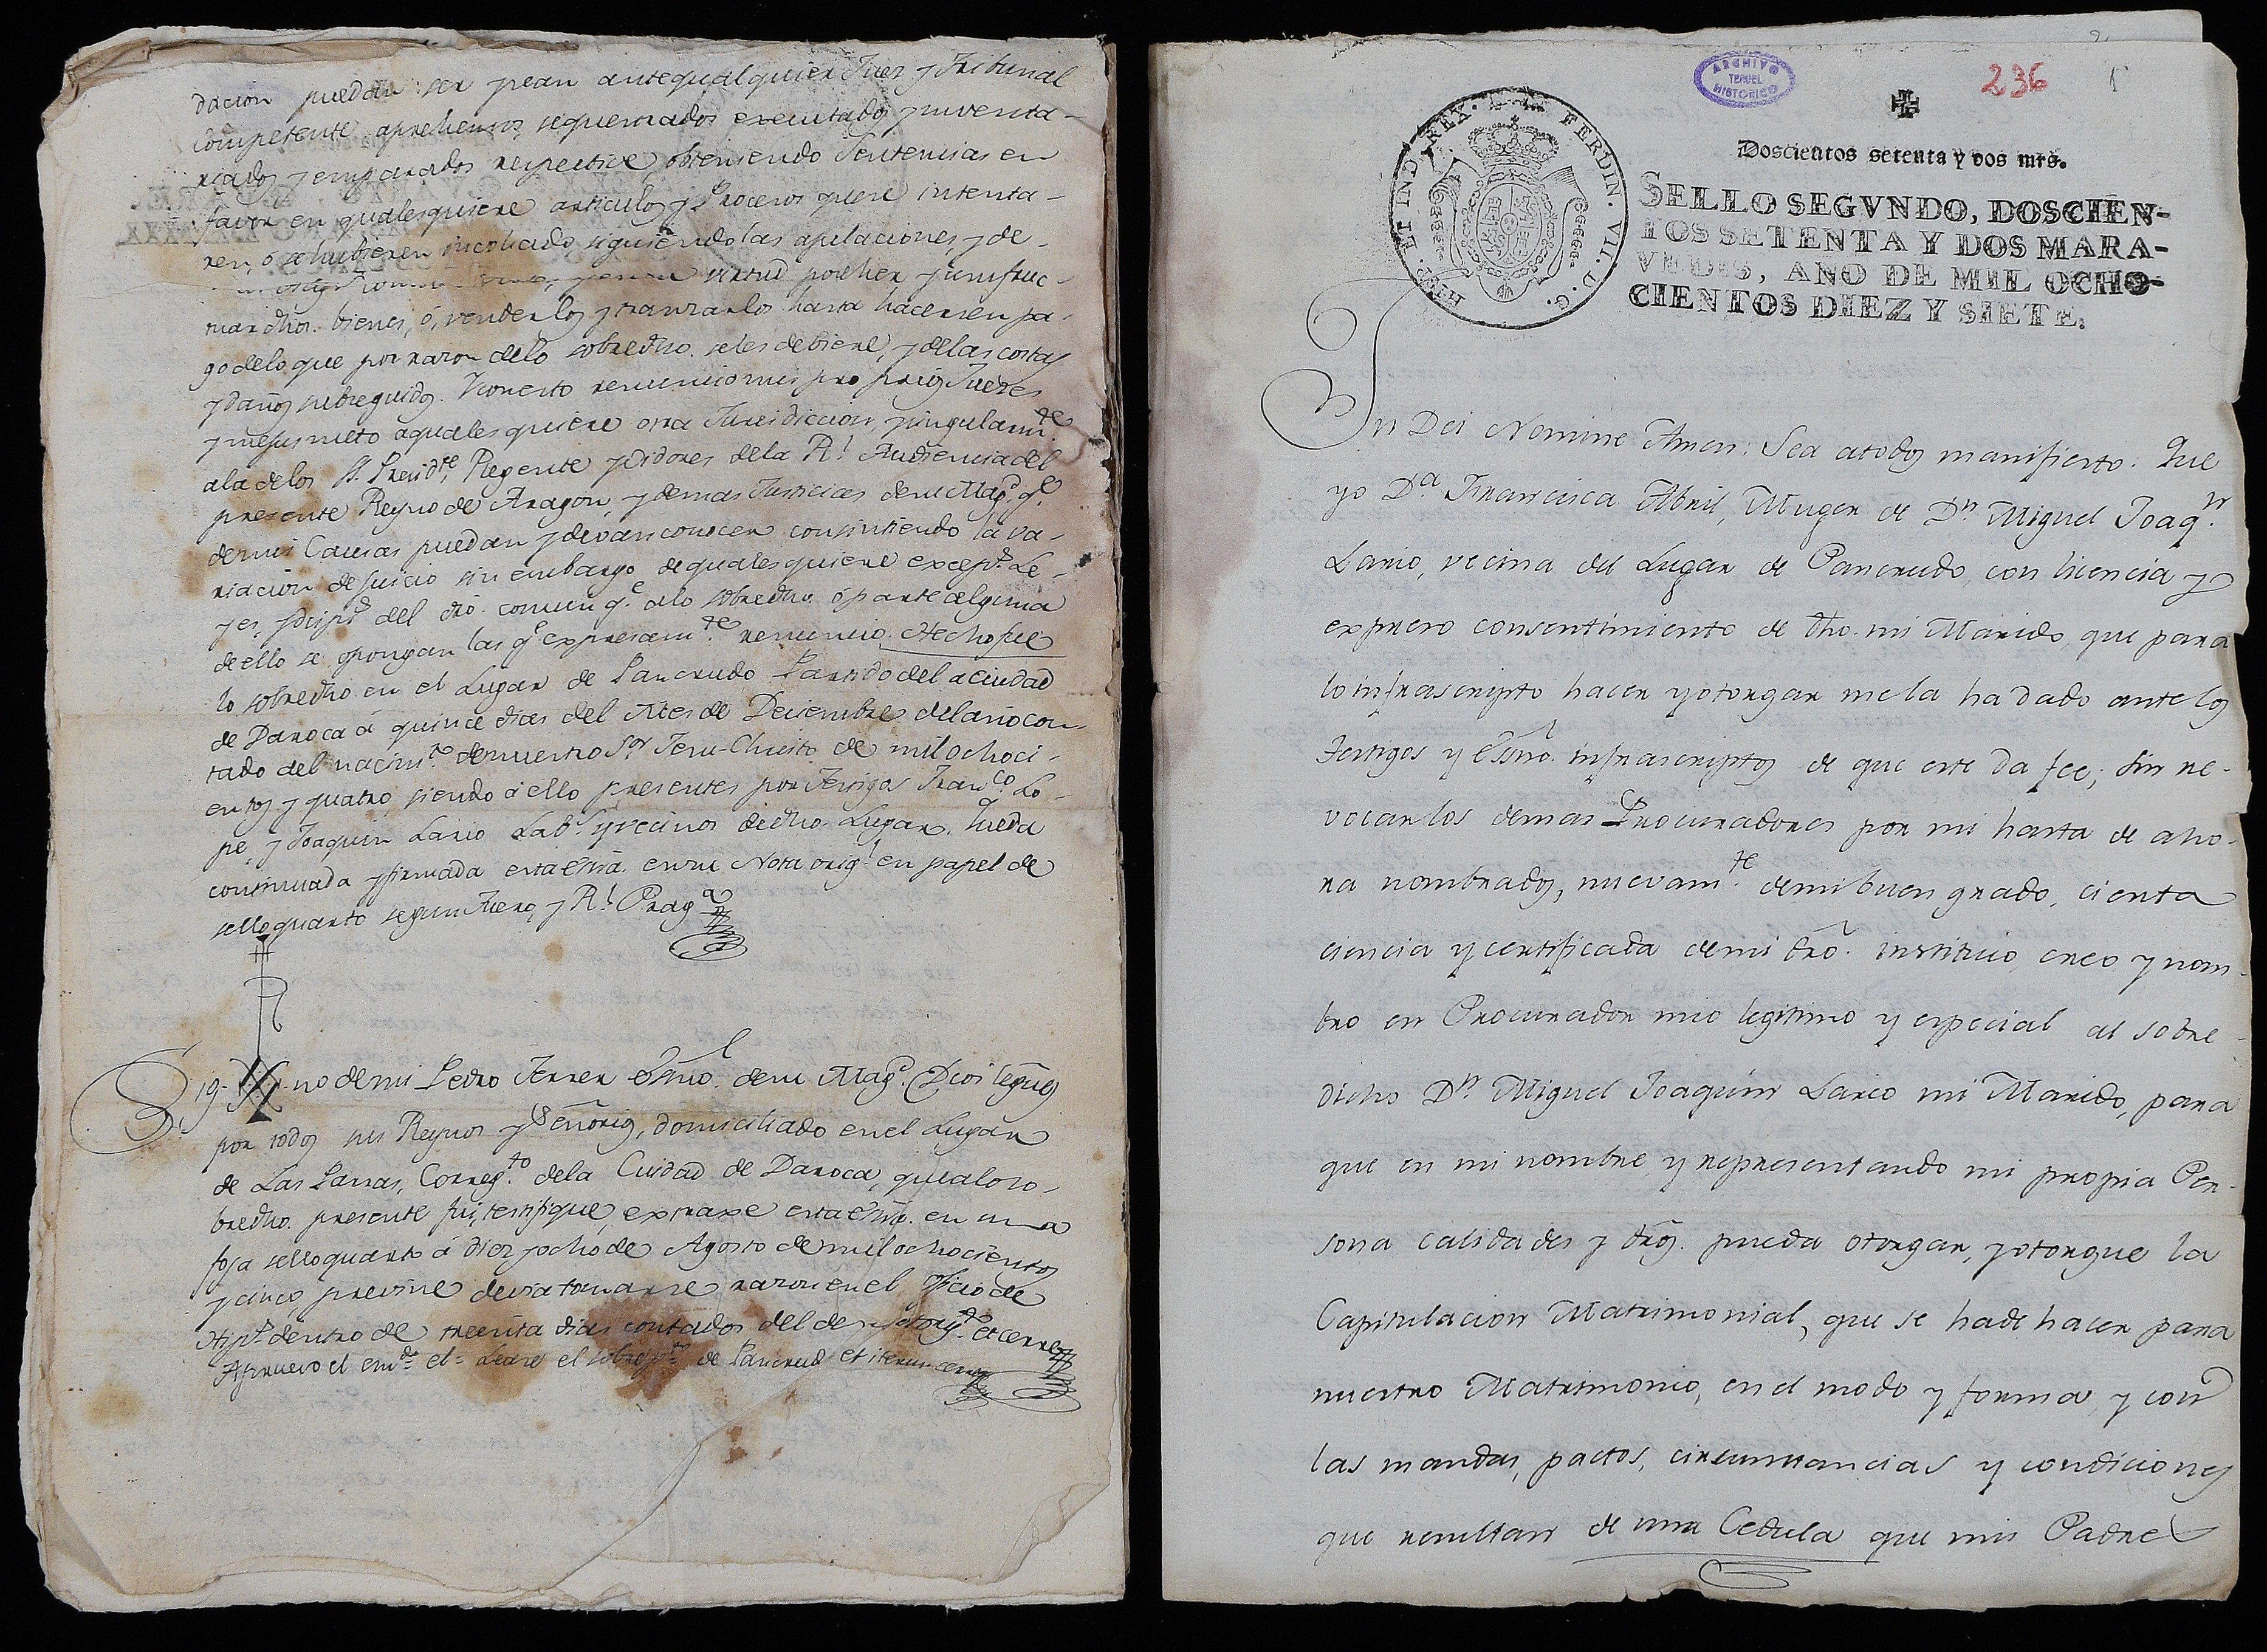 dacion puedan ser y sean ante qualquier Juez y Tribunal
competente aprehensos, sequestrados executados y inventa-
riados y emparados respective, obteniendo Sentencias en
favor en qualesquiere articulos y Procesos quese intenta-
ren, ó se hubieren incohado siguiendo las apelaciones, y de-
virtud posseher y usufruc-
tuar dhos. bienes, ó, venderlos y tranzarlos hasta hacersen pa-
go delo que por razon delo sobredho. seles debiere, y delas costas
y daños subseguidos. Y conesto renuncio mis proprios Jueces
y me jusmeto a qualesquiere otra Jurisdiccion, y singularm.te
ala de los S.S. Presid.te, Regente y Oidores dela R.l Audiencia del
presente Reyno de Aragon, y demas Justicias de su Mag.d q.e
demis Causas puedan y devan conocer consintiendo la va-
riacion de Juicio sin embargo de qualesquiere excep.s Le-
yes, y disp.s del dro. comun q.e alo sobredho. ó parte alguna
de ello se opongan las q.e expresam.te renuncio. Hecho fue
lo sobredho en el Lugar de Pancrudo Partido dela ciudad
de Daroca á quince dias del Mes de Deciembre del año con-
tado del nacim.to de nuestro S.or Jesu-Christo de mil ochoci-
entos y quatro, siendo á ello presentes por Testigos Fran.co Lo-
pe, y Joaquin Lario Lab.s y vecinos de dho. Lugar. Queda
continuada y firmada esta Esra. en su Nota orig.l en papel de
sello quarto segun Fuero, y R.l Prag.ca
Sig-no de mi Pedro Ferrer Esno. de su Mag.d (Dios le gue)
por todos sus Reynos y Señorios, domiciliado en el Lugar
de Las Parras, Correg.to dela Cuidad de Daroca, que alo so-
bredho. presente fui, testifique, extraxe esta Esra. en una
foja sello quarto á diez y ocho de Agosto de mil ochocientos
y cinco previne devia tomarse razon en el oficio de
Hip.s dentro de treenta dias contados del de su otorg.to et cerre
Apruevo el em.do el= Lease el sobrep.to de Pancrudo et iterum cerre
ARCHIVO
TERUEL
HISTORICO
236
Doscientos setenta y dos mrs.
HISP. ET IND. REX. FERDIN. VII. D. G.
SELLO SEGVNDO, DOSCIEN-
TOS SETENTA Y DOS MARA-
VEDIS, AÑO DE MIL OCHO-
CIENTOS DIEZ Y SIETE.
In Dei Nomine Amen: Sea a todos manifiesto: Que
yo D.a Francisca Abril, Muger de D.n Miguel Joaq.n
Lario, vecina del Lugar de Pancrudo, con licencia y
expreso consentimiento de dho. mi Marido, que para
lo infrascripto hacer y otorgar me la ha dado ante los
Testigos y Essno. infrascriptos de que este da fee; Sin re-
vocar los demas Procuradores por mi hasta de aho-
ra nombrados, nuevam.te de mi buen grado, cierta
ciencia y certificada de mi dro. instituio, creo y nom-
bro en Procurador mio legitimo y especial al sobre-
dicho D.n Miguel Joaquin Lario mi Marido, para
que en mi nombre, y representando mi propia Per-
sona calidades y dros. pueda otorgar, y otorgue la
Capitulacion Matrimonial, que se ha de hacer para
nuestro Matrimonio, en el modo y forma, y con
las mandas, pactos, circunstancias y condiciones
que resultan de una Cedula que mis Padres